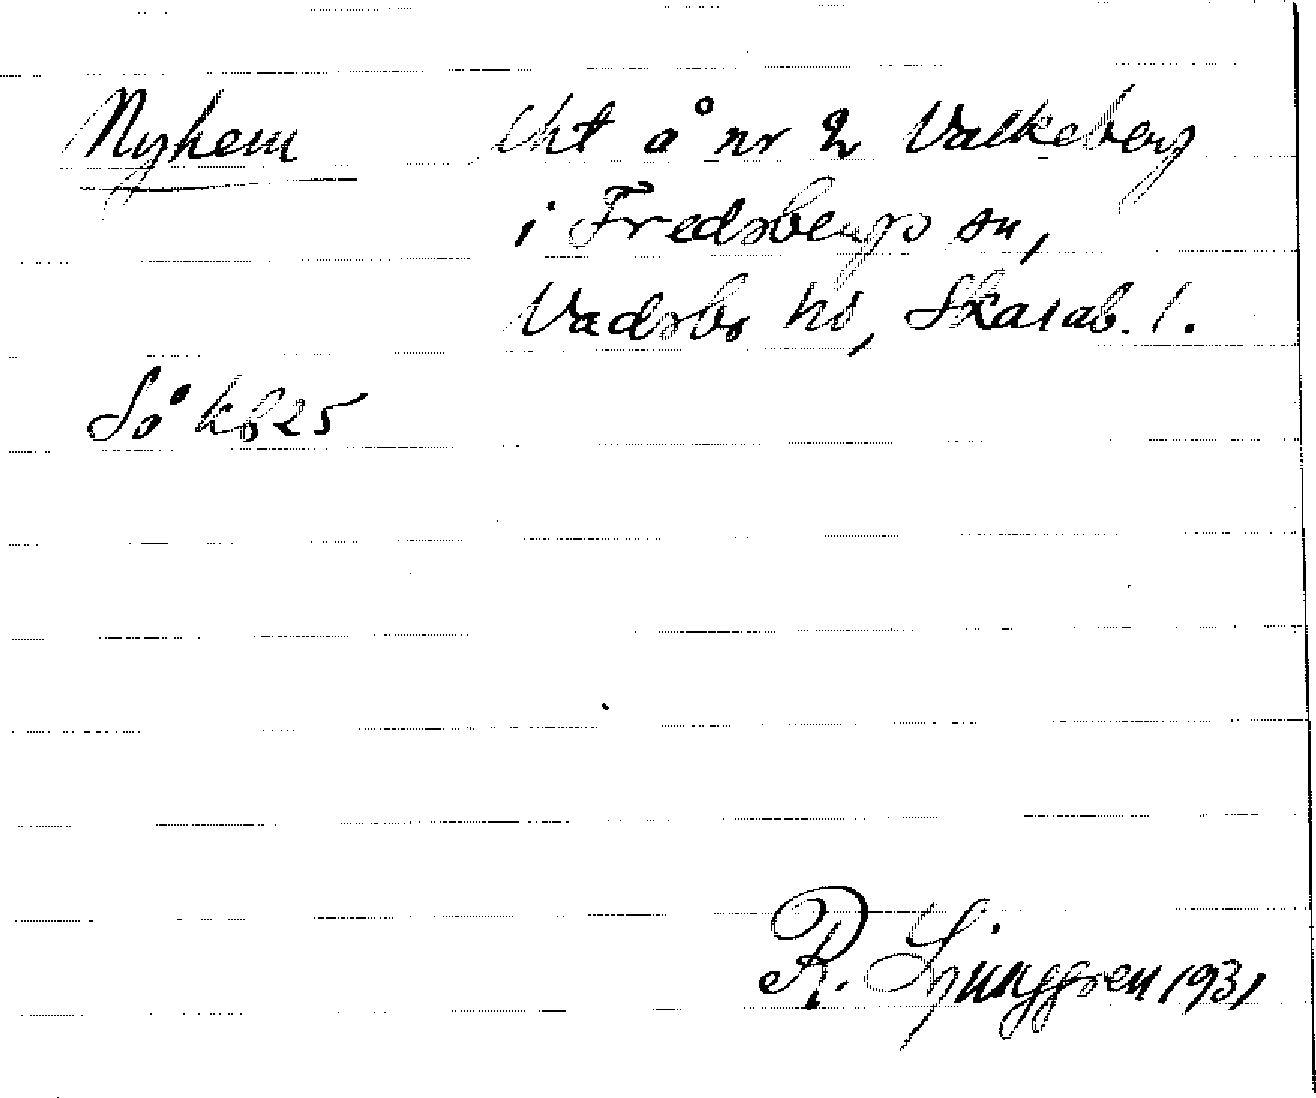 Nyhem lht å nr 2 Valkeberg
i Fredsbergs sn,
Vadsbo hd, Skarab. l.
Så kb 25
R. Ljunggren 1931